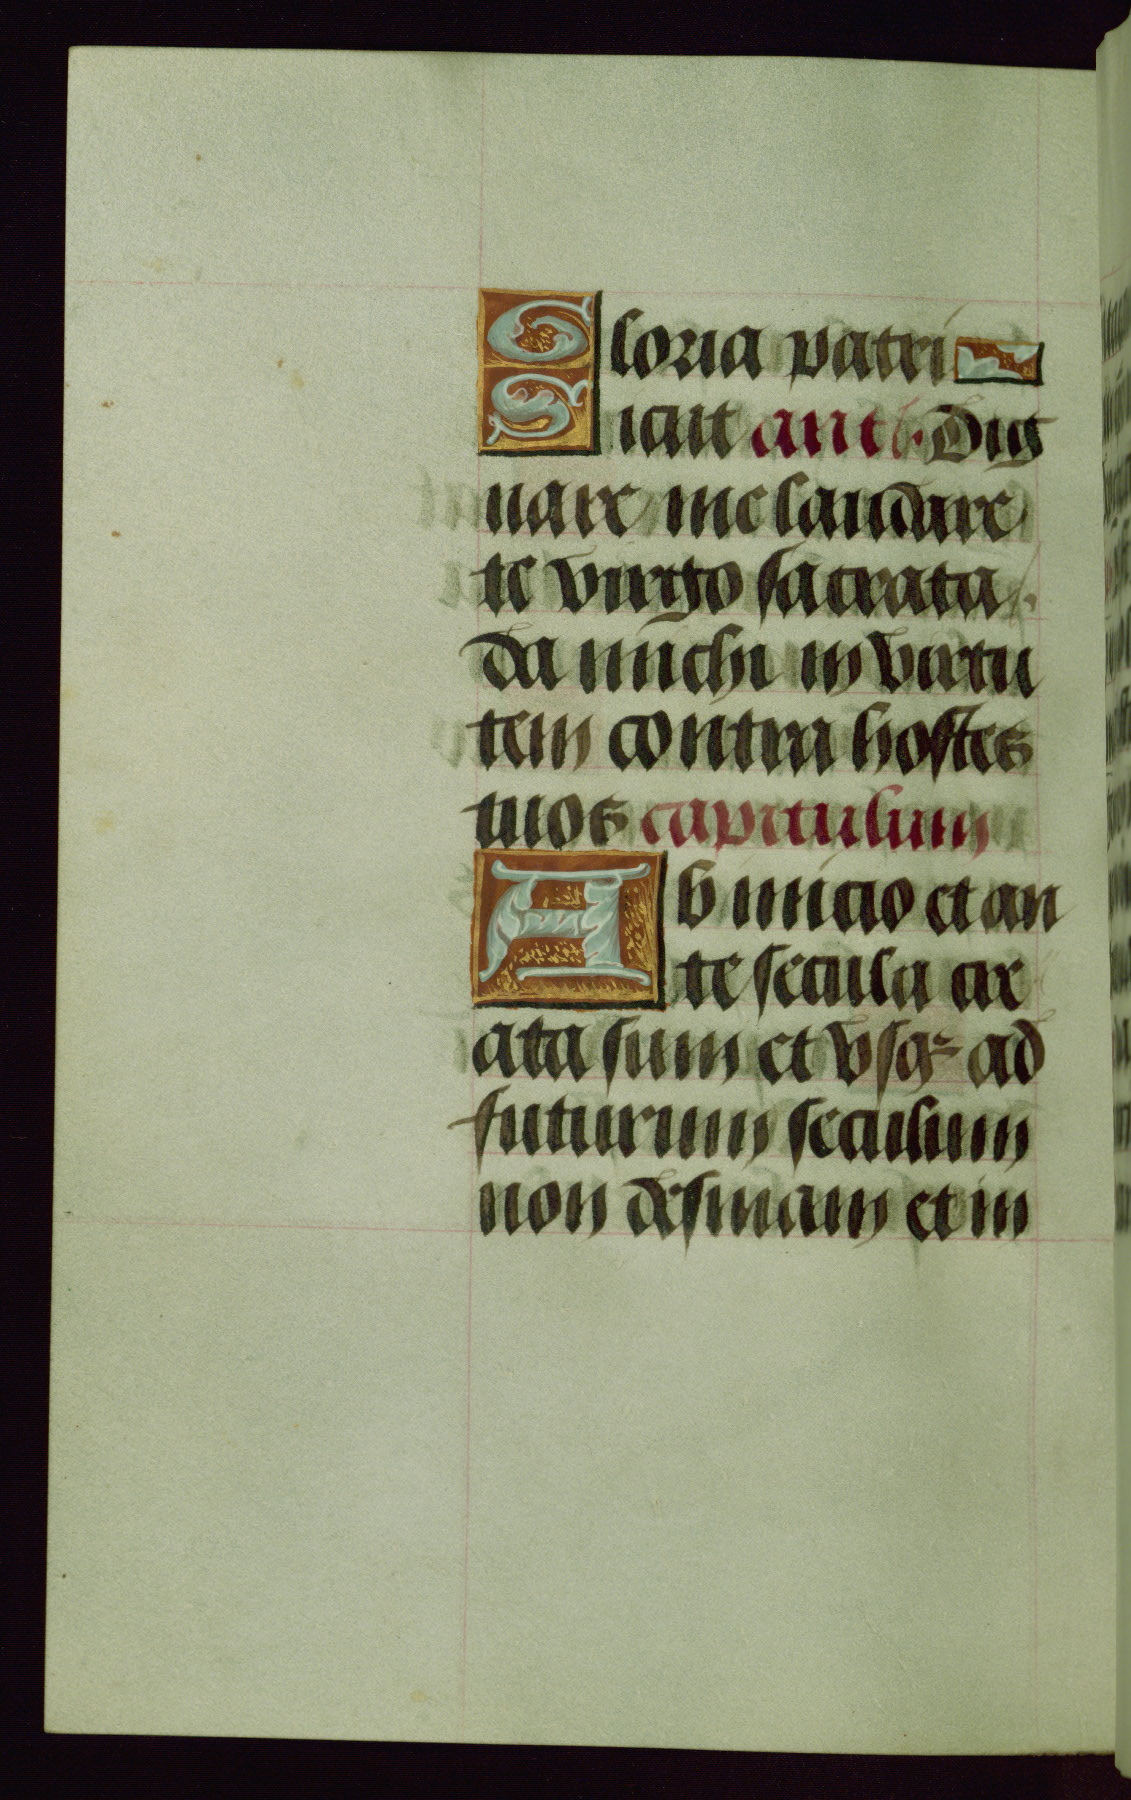 Gloria patri
Sicut anth. Dig
nare me laudare
te virgo sacrata.
da michi in virtu
tem contra hostes
tuos capitulum
Ab inicio et an
te secula cre
ata sum et vsq ad
futurum seculum
non desinam et in